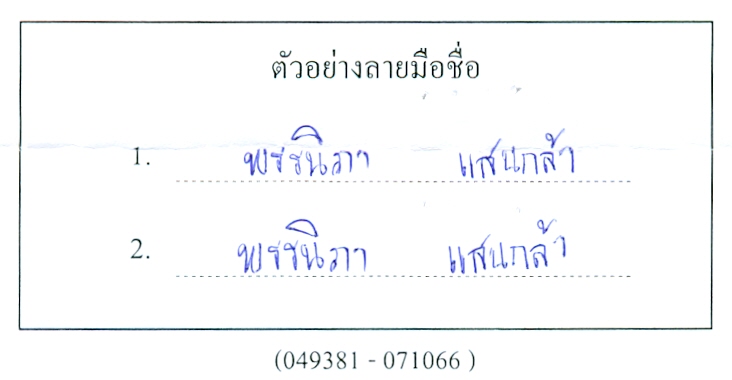 ตัวอย่างลายมือชื่อ
1. พรรนิภา แสนกล้า
2. พรรนิภา แสนกล้า
(049381 - 071066 )